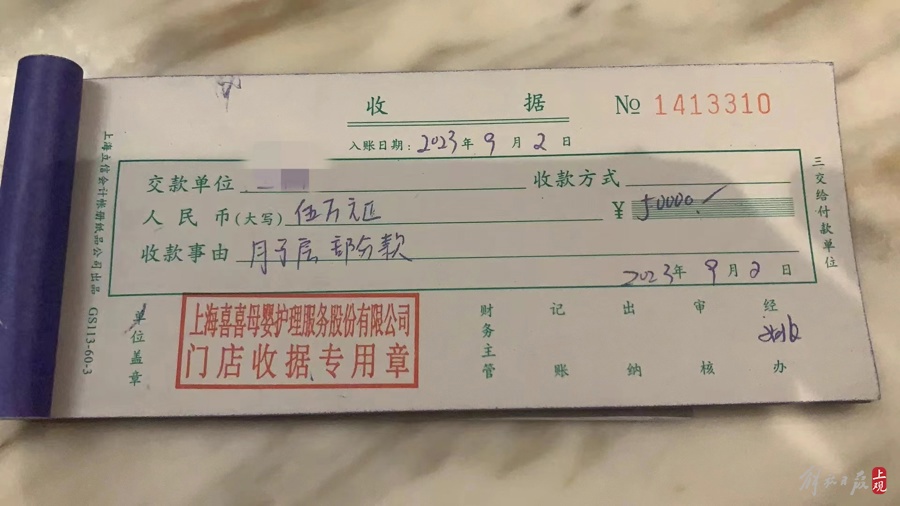 收 据
№ 1413310
入账日期：2023年9月2日
三交给付款单位
交款单位 收款方式
人民币(大写) 伍万元正 ¥ 50000.
收款事由 月子房 部分款
2023年9月2日
上海立信会计帐册纸品公司出品 GS113-60-3
单位盖章
上海喜喜母婴护理服务股份有限公司
门店收据专用章
财务主管 记账 出纳 审核 经办
解放日报 上观